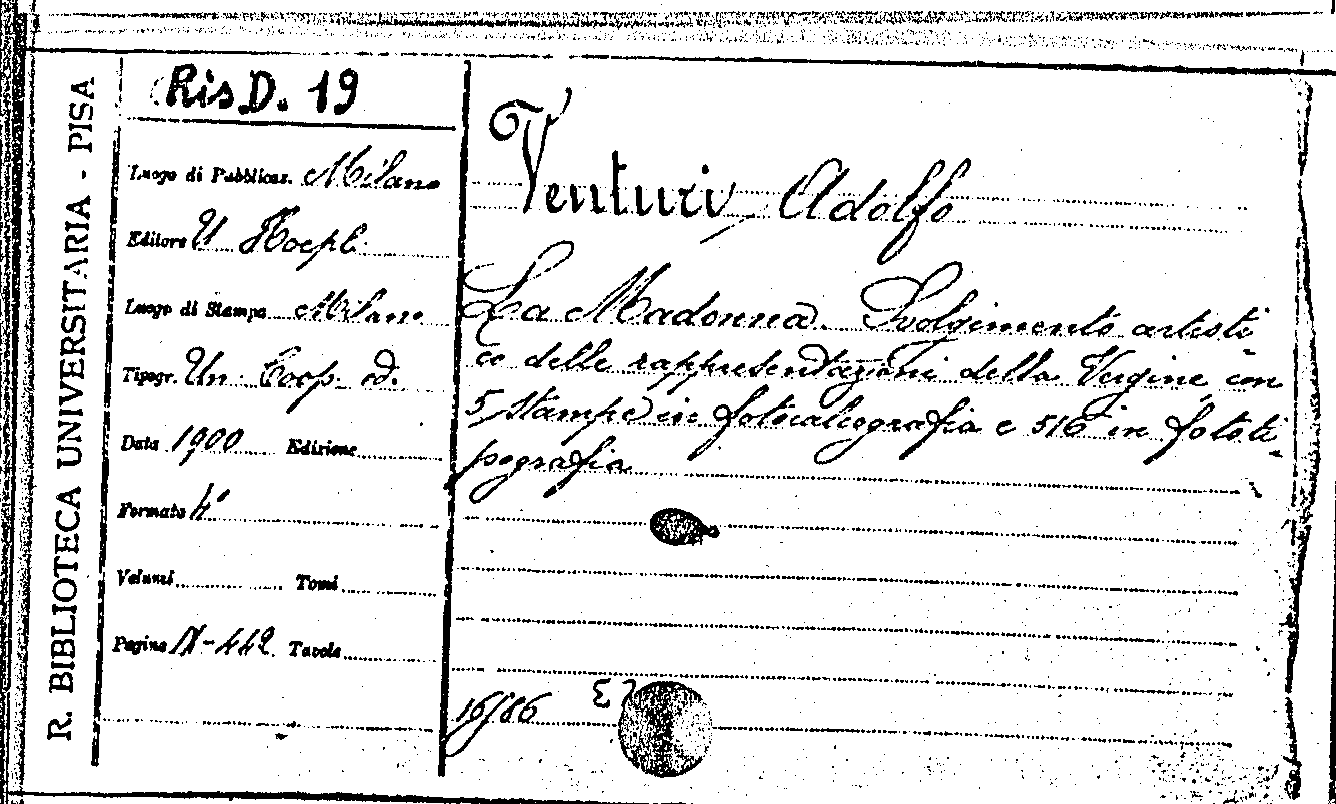 R. BIBLIOTECA UNIVERSITARIA - PISA
Ris D. 19
Luogo di Pubblicaz. Milano
Editore U Hoepli
Luogo di Stampa Milano
Tipogr. Un. Coop. ed.
Data 1900 Edizione
Formato 4°
Volumi Tomi
Pagine IX-442 Tavole
Venturi, Adolfo
La Madonna. Svolgimento artisti
co delle rappresentazioni della Vergine, con
5 stampe in fotocalcografia e 516 in fototi-
pografia